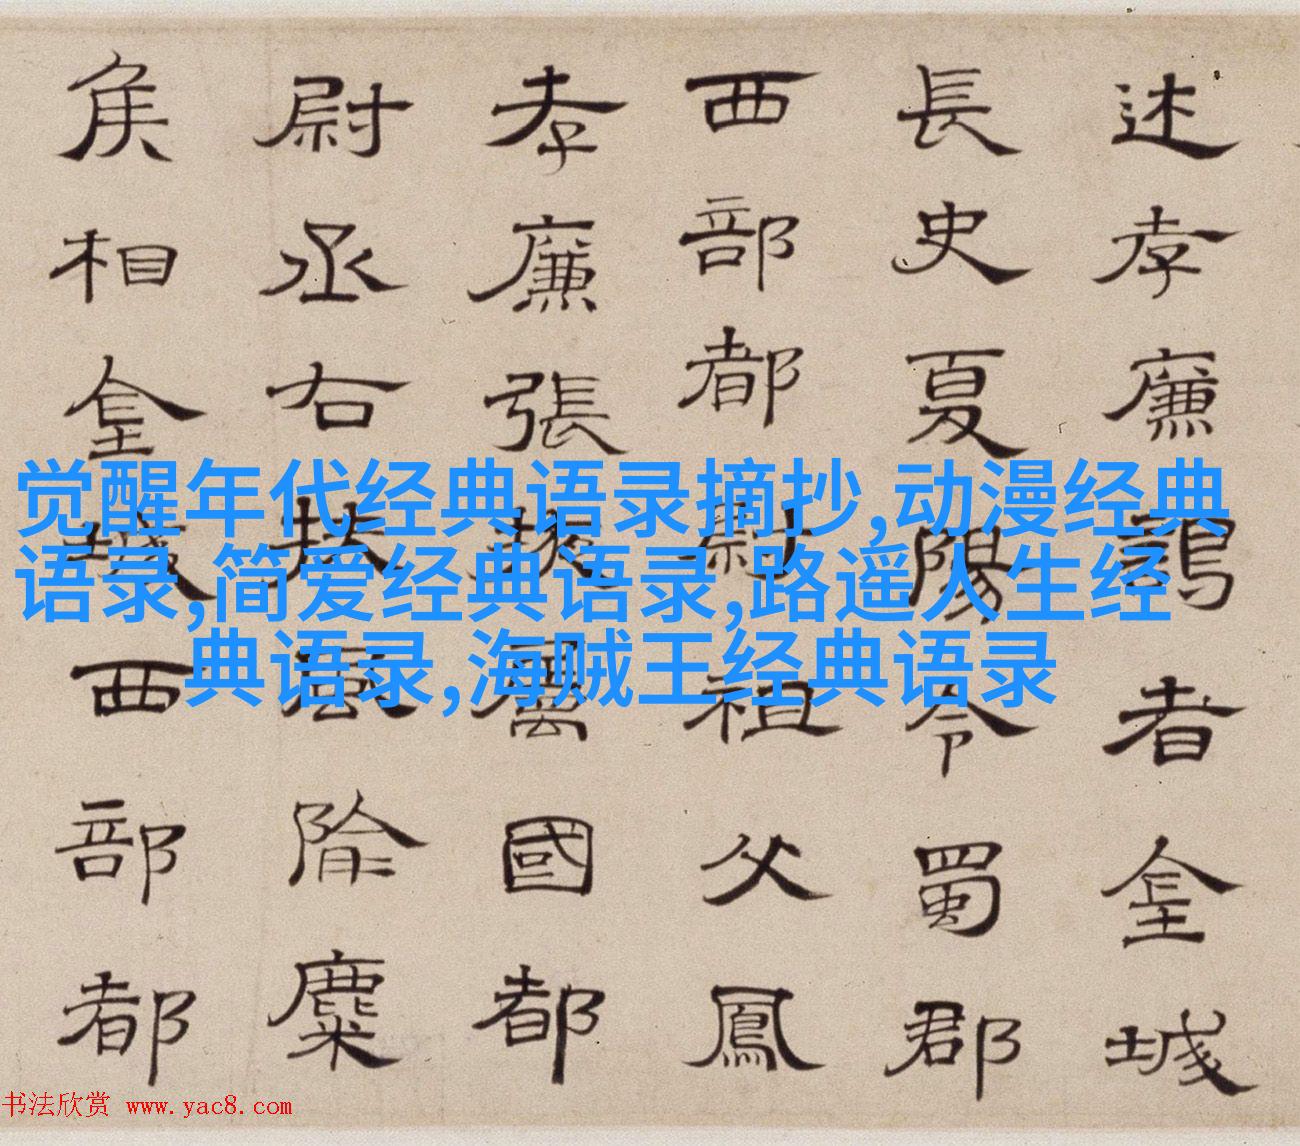 述孝廉謁者金城
長史夏陽令蜀郡
西部都尉祖父鳳
孝廉張掖屬國都
尉丞右扶風隃麋
侯相金城西部都
觉醒年代经典语录摘抄,动漫经典
语录,简爱经典语录,路遥人生经
典语录,海贼王经典语录
书法欣赏 www.yac8.com